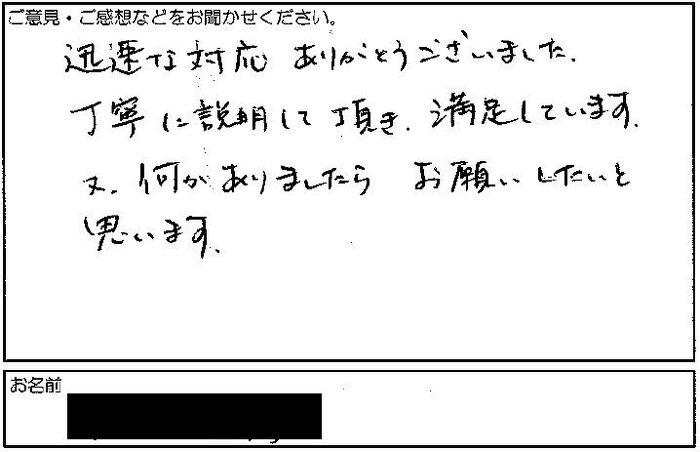 ご意見・ご感想などをお聞かせください。
迅速な対応 ありがとうございました.
丁寧に説明して頂き. 満足しています.
又. 何かありましたら お願いしたいと
思います.
お名前